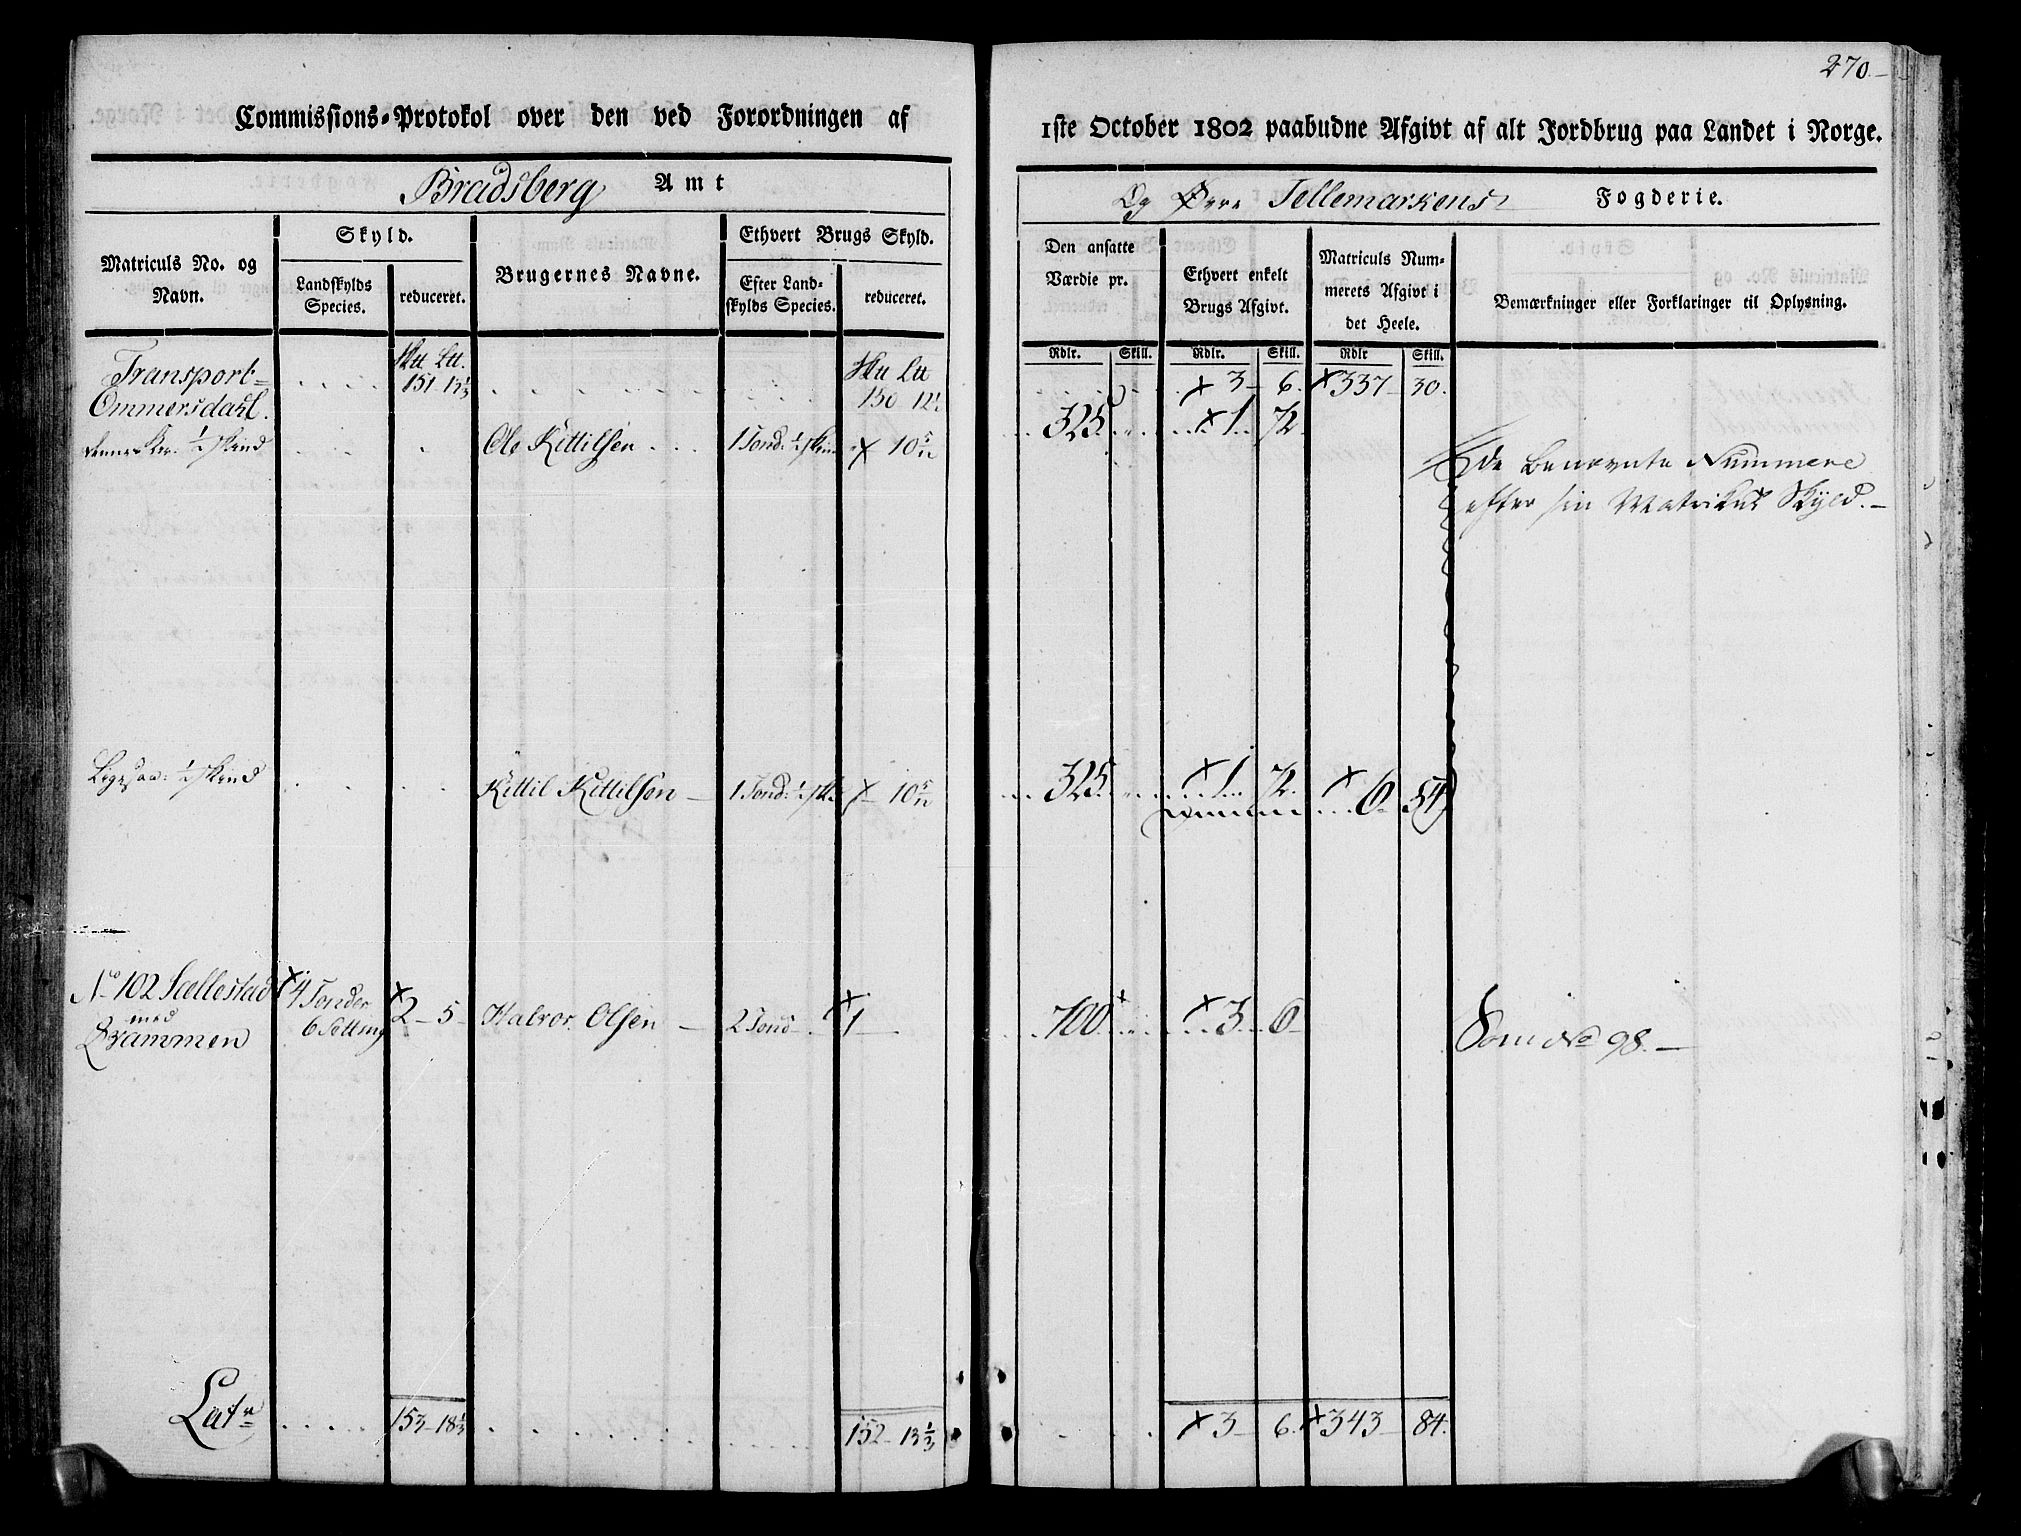 270.
Commissions-Protokol over den ved Forordningen af
1ste October 1802 paabudne Afgivt af alt Jordbrug paa Landet i Norge.
Bradsberg Amt
Og Øvre Tellemarkens Fogderie.
Matriculs No. og Navn.
Skyld.
Landskylds Species.
reduceret.
Brugernes Navne.
Ethvert Brugs Skyld.
Efter Landskylds Species.
reduceret.
Den ansatte Værdie pr.
Ethvert enkelt Brugs Afgivt.
Matriculs Nummerets Afgivt i det Heele.
Bemærkninger eller Forklaringer til Oplysning.
Rdlr. Skill. Rdlr. Skill. Rdlr Skill.
Transport 151 13⅓ 150 12½ × 3 6. × 337 30.
Ommersdahl.
½ skind Ole Kittilsen 1 Tønd: ½ skin × 10 5/12 325 × 1 72
De benævnte Nummere
efter sin Matrikul Skyld.
½ skind Kittil Kittilsen 1 Tønd: ½ sk. × 10 5/12 325 × 1 72. × 6 54
No 102 Sællestad × 4 Tønder × 2 5 Halvor Olsen 2 Tønd × 1 700 × 3 6
med 6 Setting
Qvammen
Som No 98.
Latr 153 18⅓ 152 13⅓ × 3 6. × 343 84.